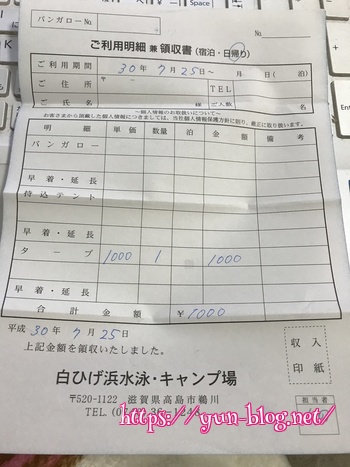 バンガローNo.
No.
ご利用明細 兼 領収書 (宿泊・日帰り)
ご利用期間 30年 7月25日~ 月 日( 泊)
ご住所 〒 - TEL
ご氏名 ご人数
~個人情報のお取扱いについて~
お客さまから頂戴した個人情報につきましては、当社個人保護方針に則り、厳正に取り扱います。
明細 単価 数量 泊 金額 備考
バンガロー
早着・延長
持込テント
早着・延長
タープ 1000 1 1000
早着・延長
合計金額 ¥1000
平成 30年 7月 25日
上記金額を領収いたしました。
収入
印紙
白ひげ浜水泳・キャンプ場
〒520-1122 滋賀県高島市鵜川
担当者
TEL.
https://yun-blog.net/